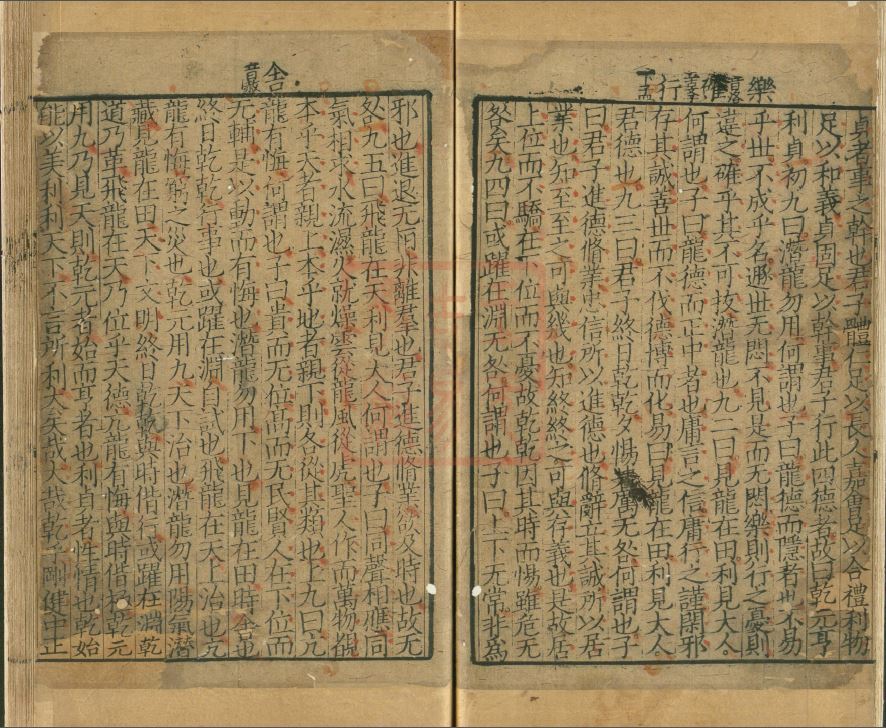 樂 音洛
確 苦學
行 下孟
貞者事之幹也君子體仁足以長人嘉會足以合禮利物
足以和義貞固足以幹事君子行此四德者故曰乾元亨
利貞初九曰潛龍勿用何謂也子曰龍德而隱者也不易
乎世不成乎名遯世无悶不見是而无悶樂則行之憂則
違之確乎其不可拔潛龍也九二曰見龍在田利見大人
何謂也子曰龍德而正中者也庸言之信庸行之謹閑邪
存其誠善世而不伐德博而化易曰見龍在田利見大人
君德也九三曰君子終日乾乾夕惕若厲无咎何謂也子
曰君子進德脩業忠信所以進德也脩辭立其誠所以居
業也知至至之可與幾也知終終之可與存義也是故居
上位而不驕在下位而不憂故乾乾因其時而惕雖危无
咎矣九四曰或躍在淵无咎何謂也子曰上下无常非為
舍 音捨
邪也進退无恒非離羣也君子進德脩業欲及時也故无
咎九五曰飛龍在天利見大人何謂也子曰同聲相應同
氣相求水流濕火就燥雲從龍風從虎聖人作而萬物覩
本乎天者親上本乎地者親下則各從其類也上九曰亢
龍有悔何謂也子曰貴而无位高而无民賢人在下位而
无輔是以動而有悔也潛龍勿用下也見龍在田時舍也
終日乾乾行事也或躍在淵自試也飛龍在天上治也亢
龍有悔窮之災也乾元用九天下治也潛龍勿用陽氣潛
藏見龍在田天下文明終日乾乾與時偕行或躍在淵乾
道乃革飛龍在天乃位乎天德亢龍有悔與時偕極乾元
用九乃見天則乾元者始而亨者也利貞者性情也乾始
能以美利利天下不言所利大矣哉大哉乾乎剛健中正